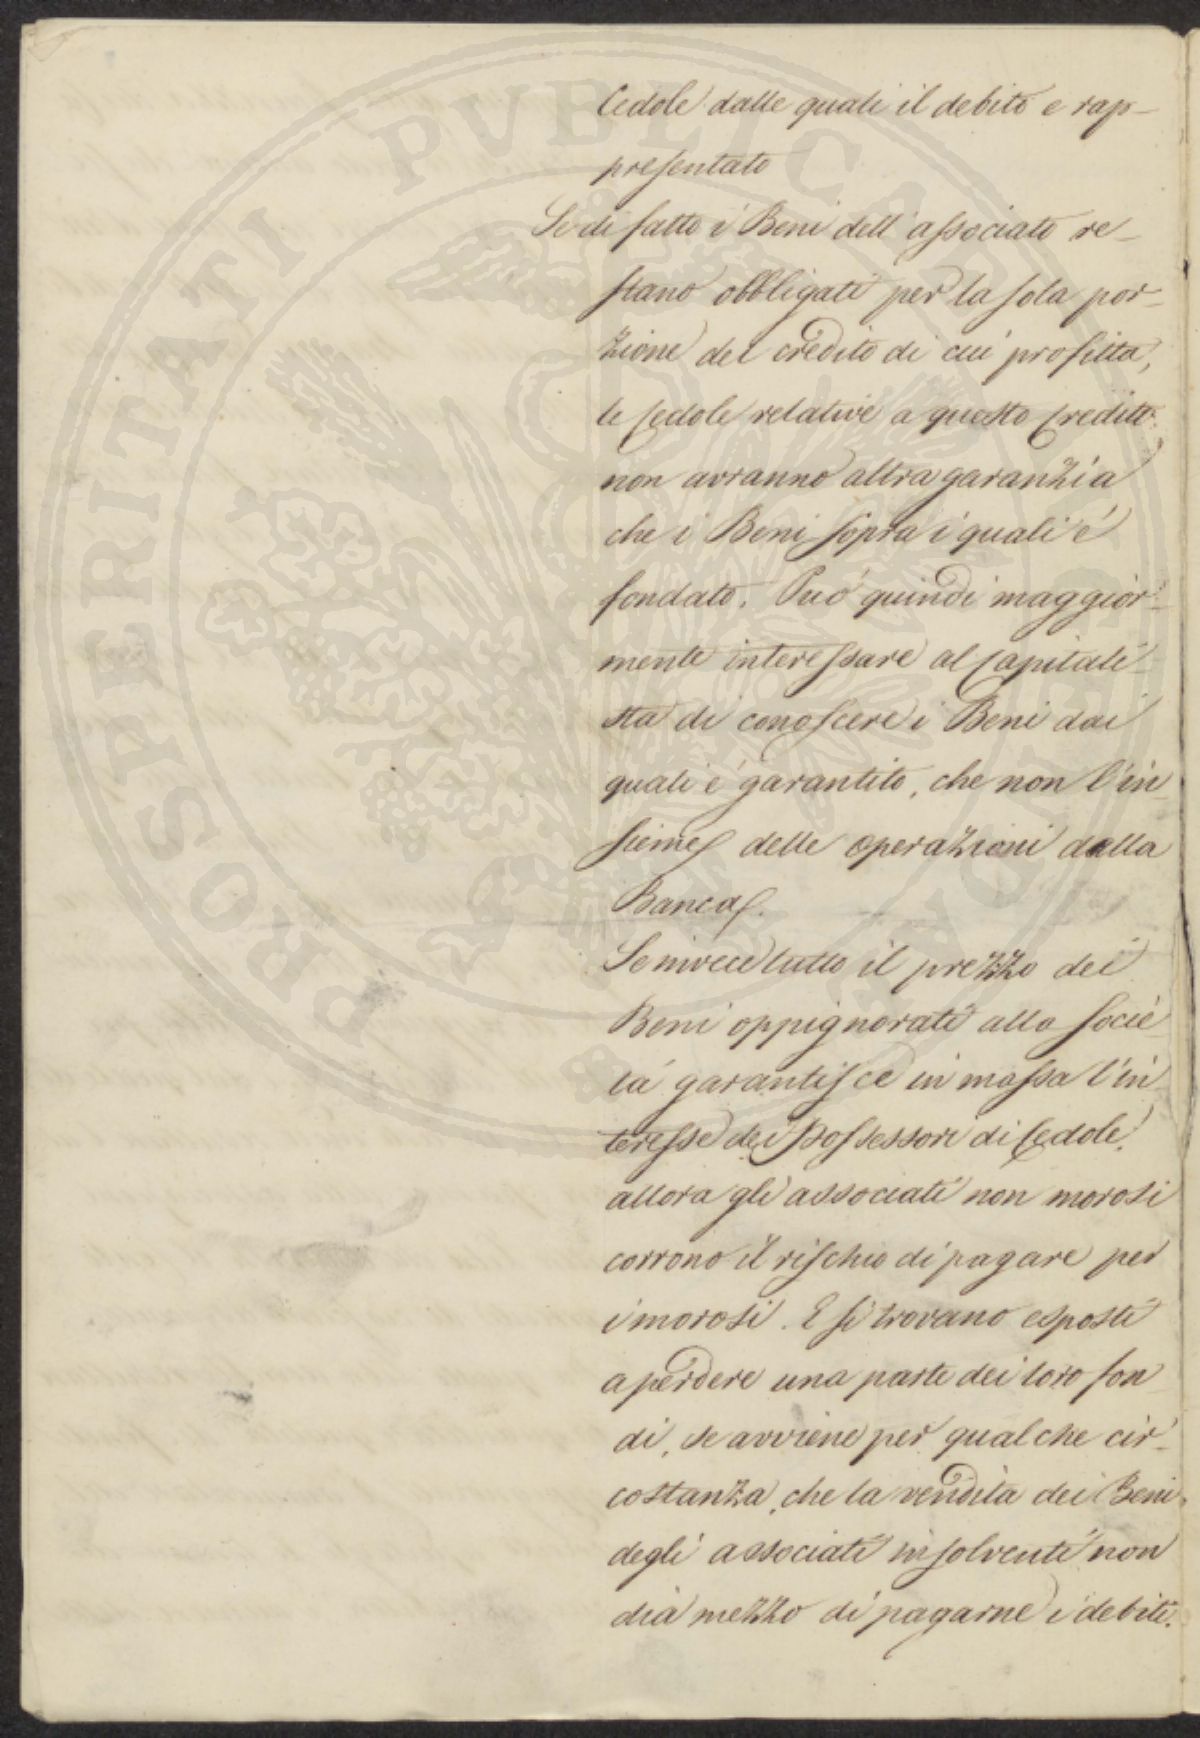 Cedole dalle quali il debito e rap-
presentato
Se di fatto i Beni dell' associato re-
stano obbligati per la sola por-
zione del credito di cui profitta,
le Cedole relative a questo Credito,
non avranno altra garanzia
che i Beni sopra i quali é
fondato. Può quindi maggior-
mente interessare al Capitali-
sta di conoscere i Beni dai
quali é garantito, che non l'in-
sieme delle operazioni della
Banca.
Se invece tutto il prezzo dei
Beni oppignorati alla Socie-
tá garantisce in massa l'in-
teresse dei Possessori di Cedole,
allora gli associati non morosi
corrono il rischio di pagare per
i morosi. E si trovano esposti
a perdere una parte dei loro fon-
di, se avviene per qualche cir-
costanza, che la vendita dei Beni
degli associati insolventi non
dia mezzo di pagarne i debiti.
PROSPERITATI PVBLICAE AVGENDAE